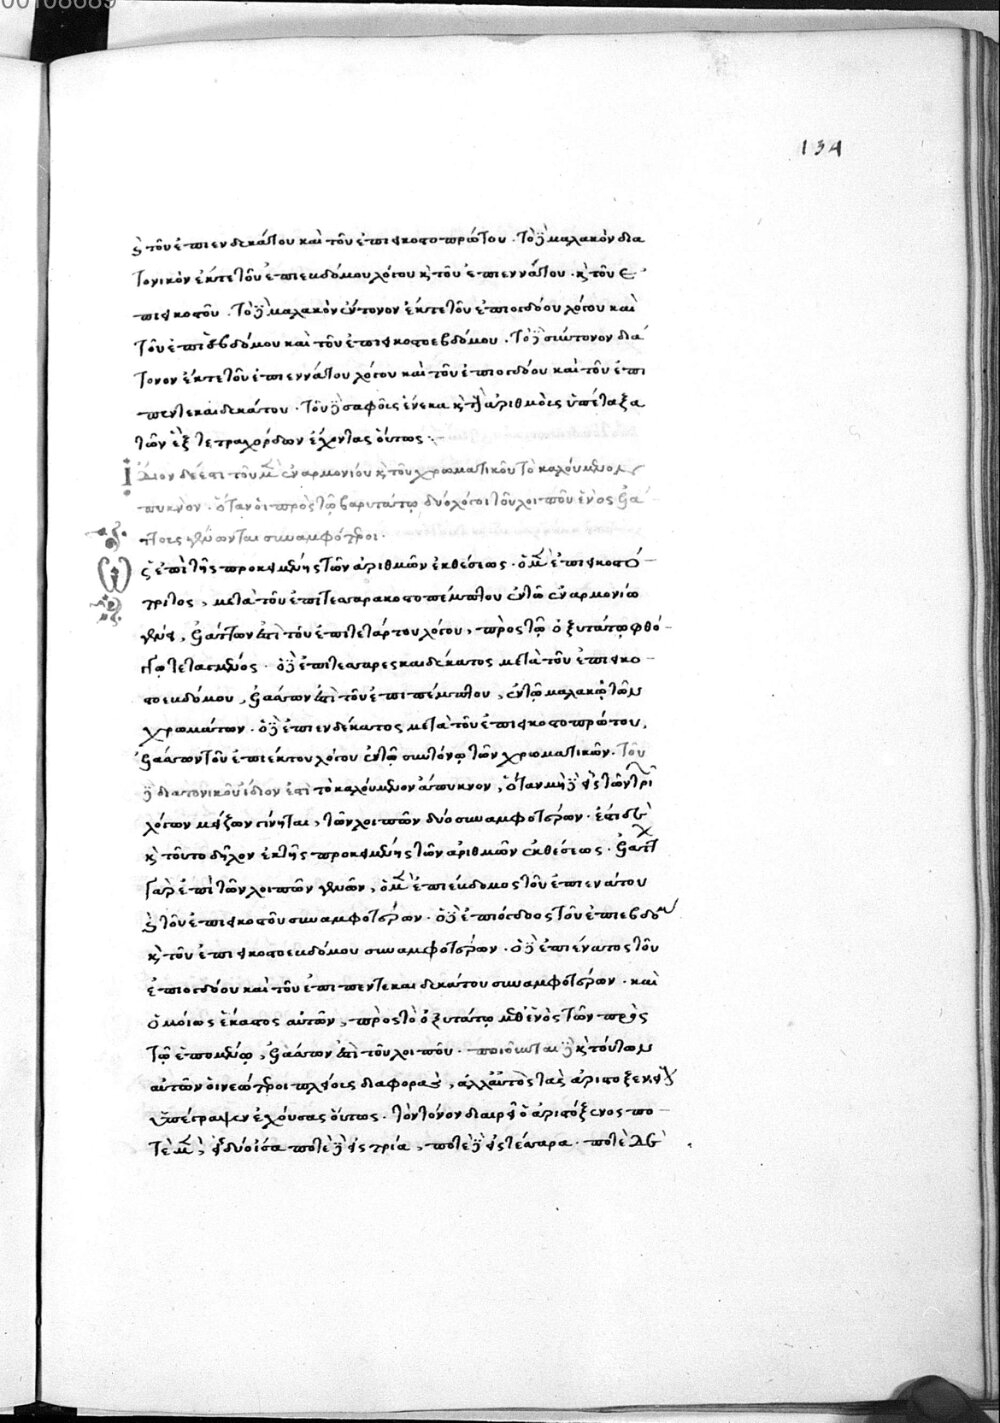 00108689
134
ϛ τοῦ ἐπιενδεκάτου καὶ τοῦ ἐπιεικοστοπρώτου. Τὸ δὲ μαλακὸν δια
τονικὸν ἔκ τε τοῦ ἐπιεβδόμου λόγου κ τοῦ ἐπιεννάτου. κ τοῦ ἐ
πιεικοστοῦ. Τὸ δὲ μαλακὸν ἔντονον ἔκ τε τοῦ ἐπιογδόου λόγου καὶ
τοῦ ἐπιεβδόμου καὶ τοῦ ἐπιεικοστοεβδόμου. Τὸ δὲ σύντονον διά
τονον ἔκ τε τοῦ ἐπιεννάτου λόγου καὶ τοῦ ἐπιογδόου καὶ τοῦ ἐπι
πεντεκαιδεκάτου. Τοῦ δὲ σαφοῖς ἕνεκα κ τοὺς ἀριθμοῖς ὑπέταξα
τῶν ἓξ τετραχόρδων ἔχοντας οὕτως.
Ἴδιον δέ ἐστι τοῦ μὲν ἐναρμονίου κ τοῦ χρωματικοῦ τὸ καλούμενον
πυκνόν. ὅταν οἱ πρὸς τῷ βαρυτάτῳ δύο λόγοι τοῦ λοιποῦ ἑνὸς ἐλά
ττους γένωνται συναμφότεροι.
ὡς ἐπὶ τῆς προκειμένης τῶν ἀριθμῶν ἐκθέσεως. ὁ μὲν ἐπιεικοστό
τριτος, μετὰ τοῦ ἐπιτεσσαρακοστοπέμπτου ἐν τῷ ἐναρμονίῳ
γένει, ἐλάττων ἐστὶ τοῦ ἐπιτετάρτου λόγου, πρὸς τῷ ὀξυτάτῳ φθό
γγῳ τεταγμένος. ὁ δὲ ἐπιτεσσαρεσκαιδέκατος μετὰ τοῦ ἐπιεικο
στοεβδόμου, ἐλάσσων ἐστὶ τοῦ ἐπιπέμπτου, ἐν τῷ μαλακῷ τῶν
χρωμάτων. ὁ δὲ ἐπιενδέκατος μετὰ τοῦ ἐπιεικοστοπρώτου,
ἐλάσσων τοῦ ἐπιέκτου λόγου ἐν τῷ συντόνῳ τῶν χρωματικῶν. Τοῦ
δὲ διατονικοῦ ἴδιον ἐστὶ τὸ καλούμενον ἄπυκνον, ὅταν μὴ δὲ εἷς τῶν τριῶν
λόγων μείζων γίνηται, τῶν λοιπῶν δύο συναμφοτέρων. ἔστι δὲ
κ τοῦτο δῆλον ἐκ τῆς προκειμένης τῶν ἀριθμῶν ἐκθέσεως. ἐλάττων
γὰρ ἐπὶ τῶν λοιπῶν γενῶν, ὁ μὲν ἐπιέβδομος τοῦ ἐπιενάτου
ϛ τοῦ ἐπιεικοστοῦ συναμφοτέρων. ὁ δὲ ἐπιόγδοος τοῦ ἐπιεβδόμου
κ τοῦ ἐπιεικοστοεβδόμου συναμφοτέρων. ὁ δὲ ἐπιένατος τοῦ
ἐπιογδόου καὶ τοῦ ἐπιπεντεκαιδεκάτου συναμφοτέρων. καὶ
ὁμοίως ἕκαστος αὐτῶν, πρὸς τὸ ὀξυτάτῳ μεθ' ἑνὸς τῶν πρὸς
τῷ ἑπομένῳ, ἐλάσσων ἐστὶ τοῦ λοιποῦ. ποιοῦνται δὲ κ τούτων
αὐτῶν οἱ νεώτεροι πλείους διαφοράς, ἀλλ' αὐτὸς τὰς ἀριστοξενείους
ὑπέγραψεν ἐχούσας οὕτως. τὸν τόνον διαιρεῖ ὁ ἀριστόξενος πο
τὲ μὲν, εἰς δύο ἴσα ποτὲ δὲ εἰς τρία, ποτὲ δὲ εἰς τέσσαρα. ποτὲ δὲ